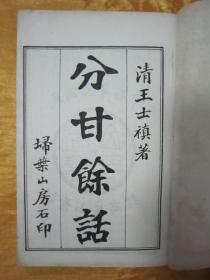 清王士禛著
分甘餘話
掃葉山房石印